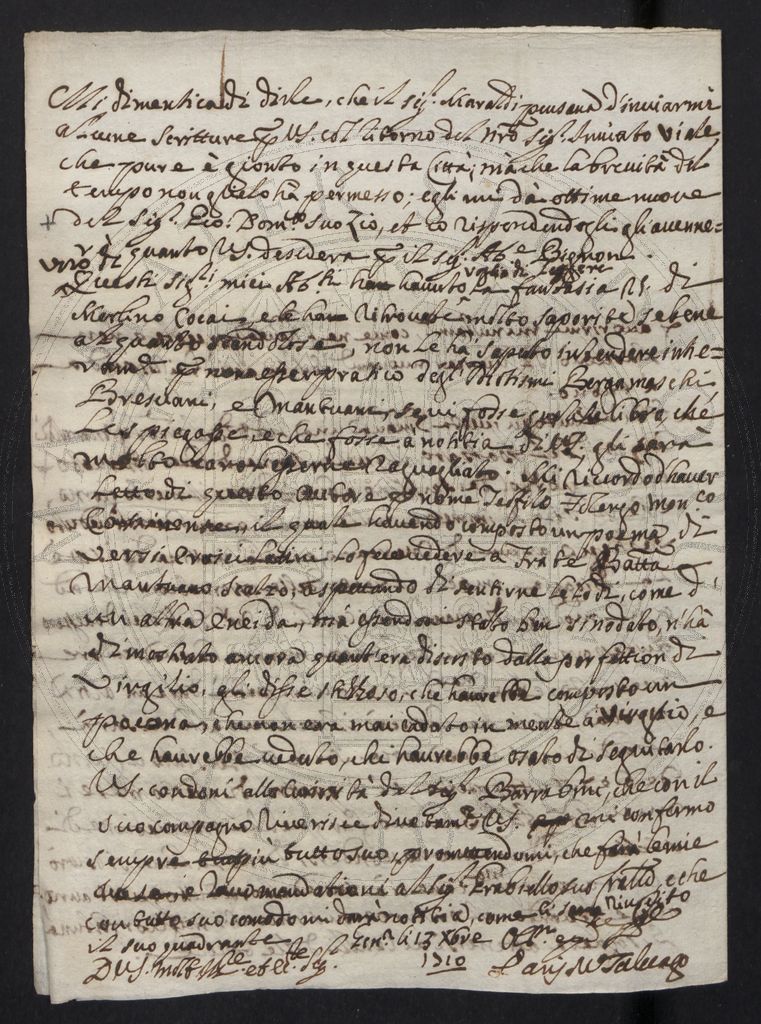 Mi dimenticadi dirle, che il sig.r Maraldi pensana d'inuiarmi
alcune scritture p VS. col ritorno del nro sig.r Inuiato Viale
che pure è gionto in questa Città, mà che la breuità del
tempo non glielo hà permesso; egli mi dà ottime nuoue
+ del Sig.r Gio: Dom.co suo Zio, et io rispondendogli gli auuer=
tirò di quanto VS. desidera p il sig.r Ab.e Bignon.
Questi Sig.ri miei Ab.ti han hauuto voglia di leggere la fantasia di
Merlino Cocai, e le han ritrouate molto saporite, se bene
alquanto non le hà saputo intendere inte=
ram.te p non esser pratico degl' Idiotismi Bergamaschi
Bresciani, e Mantuani, se qui fosse libro, che
le spiegasse, e che fosse a notitia di VS. gli sarà
molto caro esserne raguagliato. Mi ricordo d'hauer
letto di questo Autore p nome Teofilo Folengo Monco
il quale hauendo composto un poema di
versi eroici latini lo fece uedere a Frate Batta
Mantuano scalzo, aspettando di sentirne le lodi, come d'
un altra Eneida, mà essendoni stato ben lodato, n'hà
dimostrato ancora quant'era discosto dalla perfettion di
Virgilio, gli disse stizzoso, che haurebbe composto un
poema, che non era mai caduto in mente à Virgilio, e
che haurebbe ueduto, chi haurebbe osato di seguitarlo.
VS. condoni alla curiosità del sig.r Barrabini, che con il
suo compagno riuerisce diuotam.te VS. e mi confermo
sempre più tutto suo, promettendomi, che farà le mie
raccomandationi al sig.r suo fratello, e che
con tutto suo comodo mi darà notitia, come li sarà riuscito
il suo quadrante Gen.a li 13 Xbre
D VS. molt' Ill.e et Ecc.te Sig. 1710 Paris M Saluago